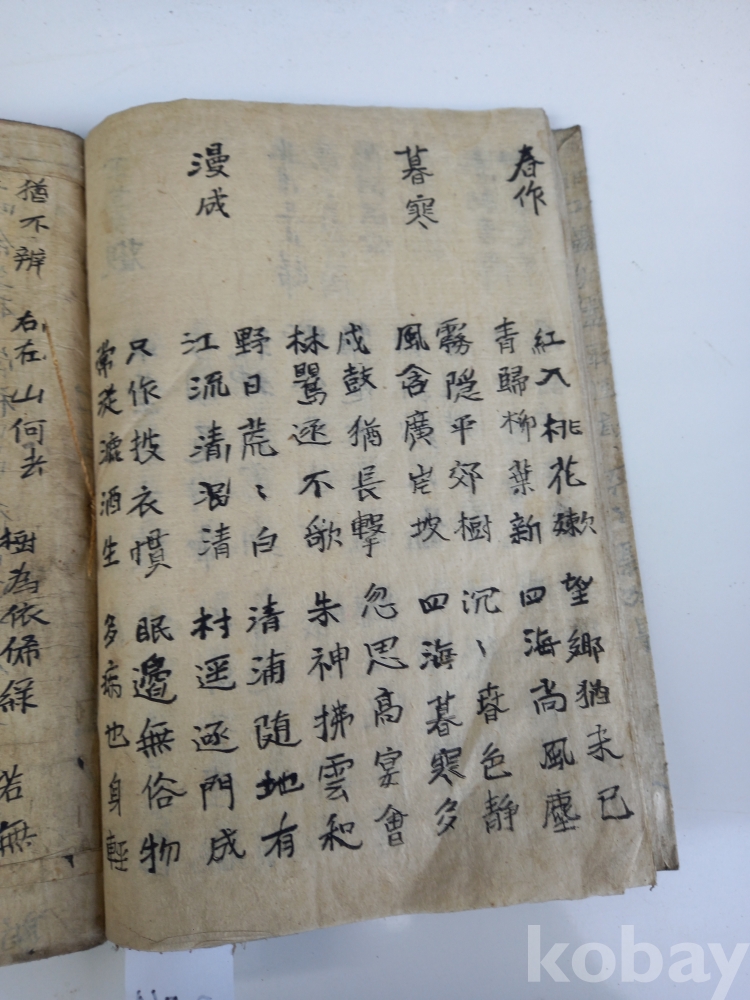 春作
紅入桃花嫩 望鄉猶未已
青歸柳葉新 四海尚風塵
暮寒
霧隱平郊樹 沉〻春色靜
風含廣岸坡 四海暮寒多
戍鼓猶長擊 忽思高宴會
林鶯逐不歌 朱神拂雲和
漫成
野日荒〻白 清浦随地有
江流清清 村逕逐門成
只作披衣慣 眠邊無俗物
常從漉酒生 多病也身輕
猶不辨 右在山何去 樹為依俙綠 若無